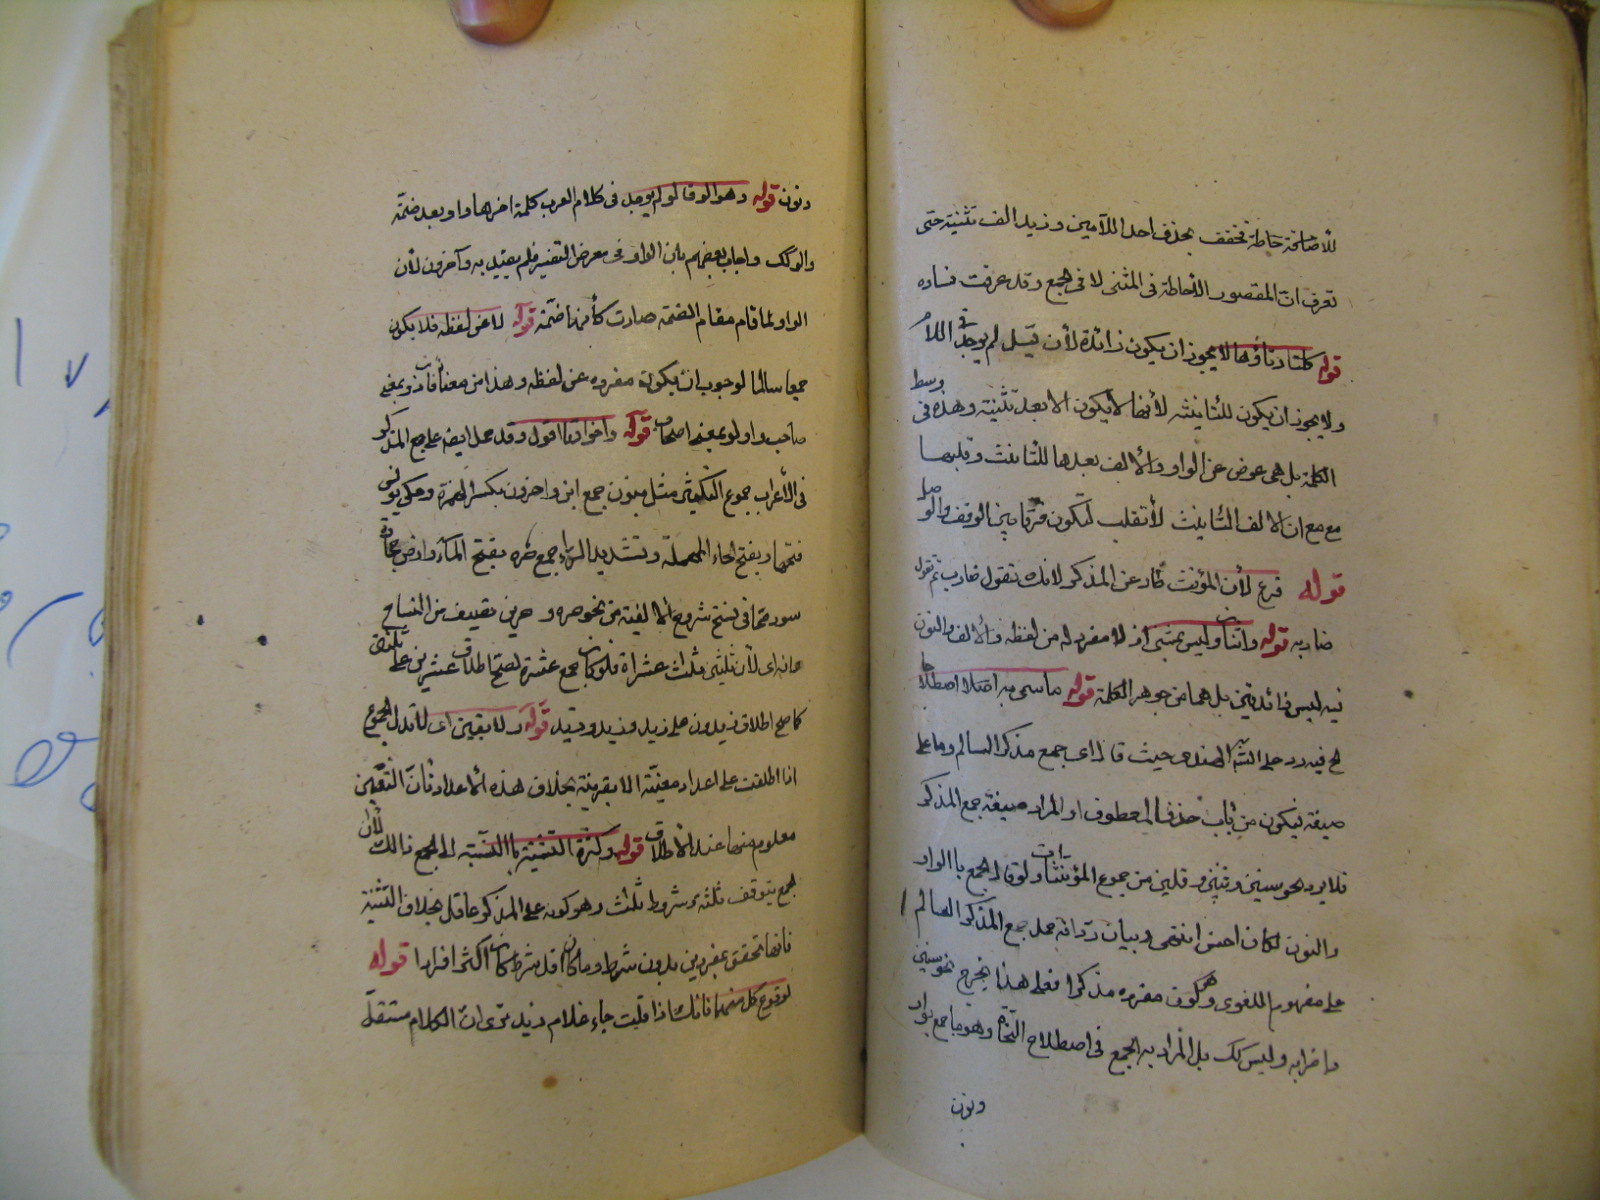 للأضافة حاطة تخفف بحذف احد اللآمين وزيد الف تثنية حتى
تعرف انّ المقصور الأحاطة فى المثنى لا فى الجمع وقد عرفت فساده
قوله كلتا وتاؤها لا يجوز ان يكون زائدة لأن فيه لم يوجد فى اللام
ولا يجوز ان يكون للتأنيث لأنها لا يكون الا بعد تثنية وهذه فى وسط
الكلمة بل هى عوض عن الواو والألف بعدها للتأنيث وقلبها
مع ان الألف التأنيث لا تقلب ليكون فرقا بين الوقف والوصل
قوله فرع لأن المؤنث فرع عن المذكر لانك تقول ضارب ثم تقول
ضاربه قوله واثنان وليس بمثنى اذ لا مفرد له من لفظه والألف والنون
فيه ليس زائدتين بل هما من جوهر الكلمة قوله ما سمى به اصلا اصطلاحا
لح فيه رد على الشّه الهندى حيث قال اى جمع مذكر السالم وما على
صيغة فيكون من باب حذف المعطوف او المراد صيغة جمع المذكر
فلا يرد نحو سنين وثبين وقلين من جموع المؤنثات ولو قال الجمع بالواو
والنون لكان احسن انتهى وبيان ردّ انه حمل جمع المذكر السالم
على مفهوم اللغوى وهو كون مفرده مذكرا فعلى هذا يخرج نحو سنين
ما ضرابه وليس كك بل المراد به الجمع فى اصطلاح النحاة وهو ما جمع بواو
ونون
ونون قوله وهو الو قال لو لم يوجد فى كلام العرب كلمة اخرها واو وبعد ضمّة
والو كك واجاب بعضهم بان الواو فى معرض التغيير فلم يعتدّ به وآخرون لأن
الواو لما قام مقام الضمّة صارت كأنها ضمّة قوله لا عن لفظه فلا يكون
جمعا سالما لوجوب ان يكون مفرده عن لفظه وهذا من معناه فان ذو بمعنى
صاحب واولو بمعنى اصحاب قوله واخواتها اقول وقد حمل ايضا على جمع المذكر
فى الأعراب جموع التكثير مثل بنون جمع ابن واحرون بكسر الهمزة وحكى يونس
فتحها وبفتح الحاء المهملة وتشديد الرّاء جمع حره بفتح الحاء وارض حجارة
سود كما فى نسخ شروح الألفية من نحو حره و حرين تصحيف من النساخ
قوله اى لأن ثلثين ثلث عشراة فلو كان جمع عشرة لصحّ اطلاق عشرين على ثلثين
كما صح اطلاق زيدون على زيد وزيد وزيد قوله ولا بعين اى لا تدل الجموع
اذا اطلقت على اعداد معينّة الا بقرينة بخلاف هذه الأعداد فانّ التعيين
معلوم منها عند الأطلاق قوله وكثرة التثنية بالنسبة الى الجمع ذالك لأن
الجمع يتوقف ثلثة شروط ثلث وهو كونه على المذكر عاقل بخلاف التثنية
فانها تحقق بمفردين بدون شرط وما كان اقل شرط كان اكثر افرادا قوله
لوقوع كل منهما فانك اذا قلت جاء غلام زيد ترى انّ الكلام مستقلّ